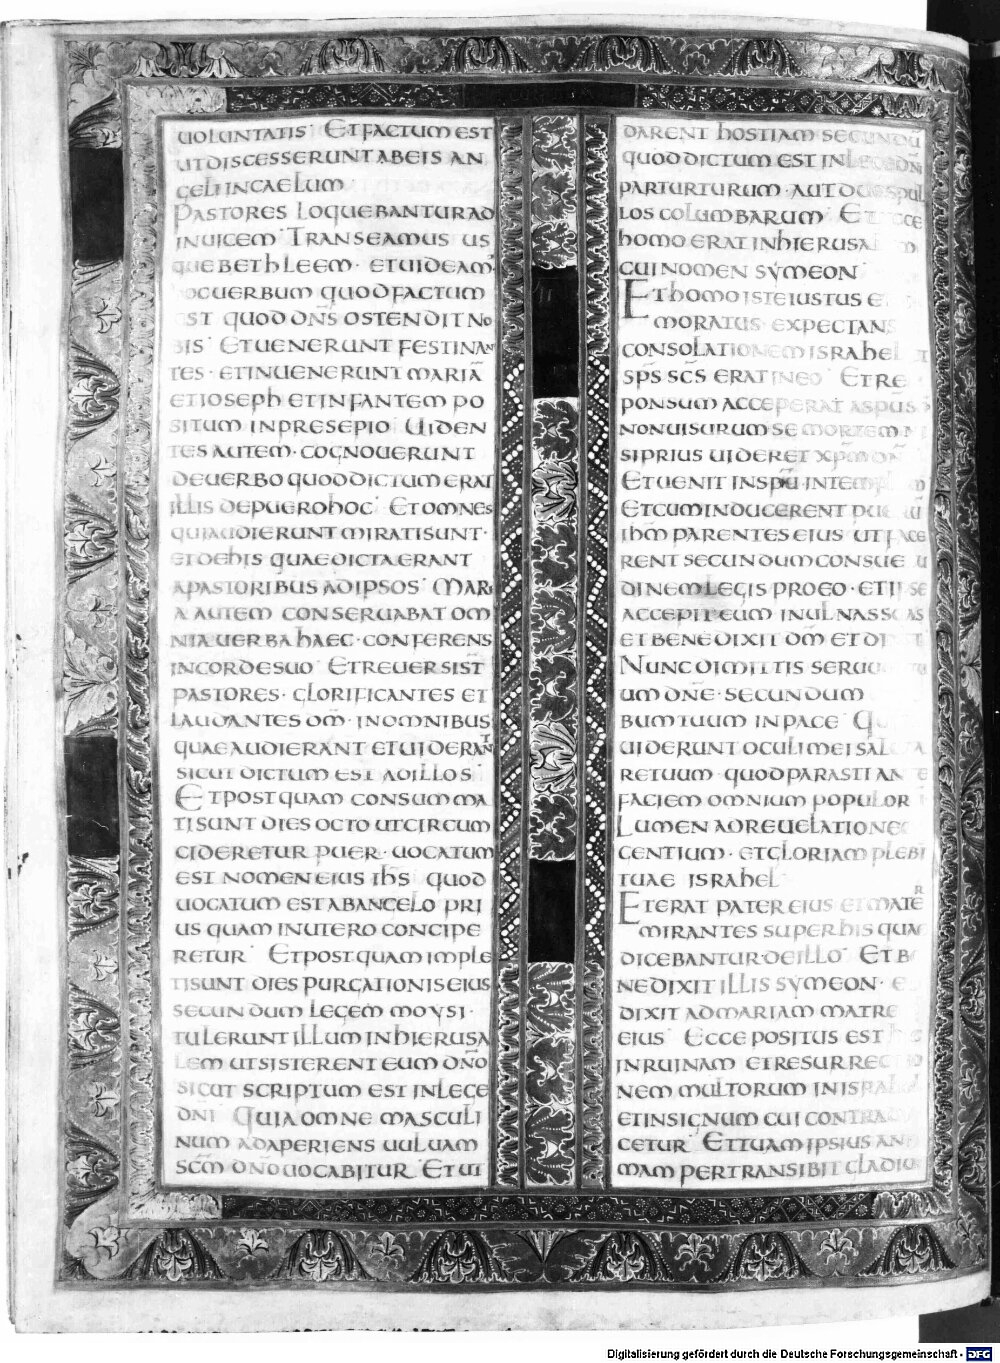 UOLUNTATIS ET FACTUM EST
UT DISCESSERUNT AB EIS AN
GELI IN CAELUM
PASTORES LOQUEBANTUR AD
INUICEM TRANSEAMUS US
QUE BETHLEEM · ET UIDEAM
OC UERBUM QUOD FACTUM
EST QUOD DN̄S OSTENDIT NO
BIS ET UENERUNT FESTINAN
TES · ET INUENERUNT MARIĀ
ET IOSEPH ET INFANTEM PO
SITUM IN PRESEPIO UIDEN
TES AUTEM · COGNOUERUNT
DE UERBO QUOD DICTUM ERAT
ILLIS DE PUERO HOC ET OMNES
QUI AUDIERUNT MIRATI SUNT ·
ET DE HIS QUAE DICTA ERANT
A PASTORIBUS AD IPSOS MARI
A AUTEM CONSERUABAT OM
NIA UERBA HAEC · CONFERENS
IN CORDE SUO ET REUERSI ST̄
PASTORES · GLORIFICANTES ET
LAUDANTES DM̄ · IN OMNIBUS
QUAE AUDIERANT ET UIDERANT
SICUT DICTUM EST AD ILLOS
ET POSTQUAM CONSUMMA
TI SUNT DIES OCTO UT CIRCUM
CIDERETUR PUER · UOCATUM
EST NOMEN EIUS IHS̄ QUOD
UOCATUM EST AB ANGELO PRI
US QUAM IN UTERO CONCIPE
RETUR ET POSTQUAM IMPLE
TI SUNT DIES PURGATIONIS EIUS
SECUNDUM LEGEM MOYSI ·
TULERUNT ILLUM IN HIERUSA
LEM UT SISTERENT EUM DN̄O
SICUT SCRIPTUM EST IN LEGE
DN̄I QUIA OMNE MASCULI
NUM ADAPERIENS UULUAM
SC̄M DN̄O UOCABITUR ET UT
DARENT HOSTIAM SECUNDŪ
QUOD DICTUM EST IN LEGE DN̄I
PAR TURTURUM · AUT DUOS PUL
LOS COLUMBARUM ET ECCE
HOMO ERAT IN HIERUSA M
CUI NOMEN SYMEON
ET HOMO ISTE IUSTUS E
MORATUS EXPECTANS
CONSOLATIONEM ISRAHEL ET
SPS̄ SCS̄ ERAT IN EO ET RE
PONSUM ACCEPERAT A SPŪ S
NON UISURUM SE MORTEM NI
SI PRIUS UIDERET XPM̄ DN̄I
ET UENIT IN SPŪ IN TEMPLUM
ET CUM INDUCERENT PUE Ū
IHM̄ PARENTES EIUS UT FACE
RENT SECUNDUM CONSUE U
DINEM LEGIS PRO EO · ET IPSE
ACCEPIT EUM IN ULNAS SUAS
ET BENEDIXIT DM̄ ET DI T
NUNC DIMITTIS SERUU TU
UM DN̄E · SECUNDUM
BUM TUUM IN PACE Q
UIDERUNT OCULI MEI SALUTA
RE TUUM · QUOD PARASTI ANTE
FACIEM OMNIUM POPULOR
LUMEN AD REUELATIONE
GENTIUM · ET GLORIAM PLEBI
TUAE ISRAHEL
ET ERAT PATER EIUS ET MATER
MIRANTES SUPER HIS QUAE
DICEBANTUR · DE ILLO ET BE
NEDIXIT ILLIS SYMEON · E
DIXIT AD MARIAM MATRE
EIUS ECCE POSITUS EST HIS
IN RUINAM ET RESURRECTIO
NEM MULTORUM IN ISRAHEL
ET IN SIGNUM CUI CONTRADI
CETUR ET TUAM IPSIUS ANI
MAM PERTRANSIBIT GLADIUS
Digitalisierung gefördert durch die Deutsche Forschungsgemeinschaft - DFG